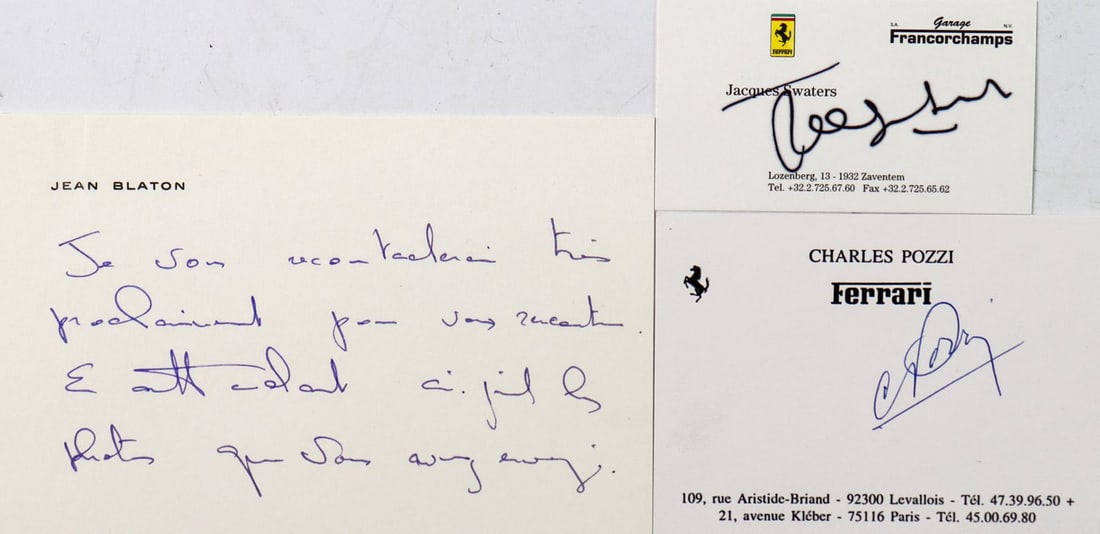 JEAN BLATON
Je vous recontacterai très
prochainement pour vous rencontrer.
En attendant ci-joint les
photos que vous avez envoyé.
Ferrari
S.A. Garage N.V.
Francorchamps
Jacques Swaters
Lozenberg, 13 - 1932 Zaventem
Tel. +32.2.725.67.60 Fax +32.2.725.65.62
CHARLES POZZI
Ferrari
109, rue Aristide-Briand - 92300 Levallois - Tél. 47.39.96.50 +
21, avenue Kléber - 75116 Paris - Tél. 45.00.69.80